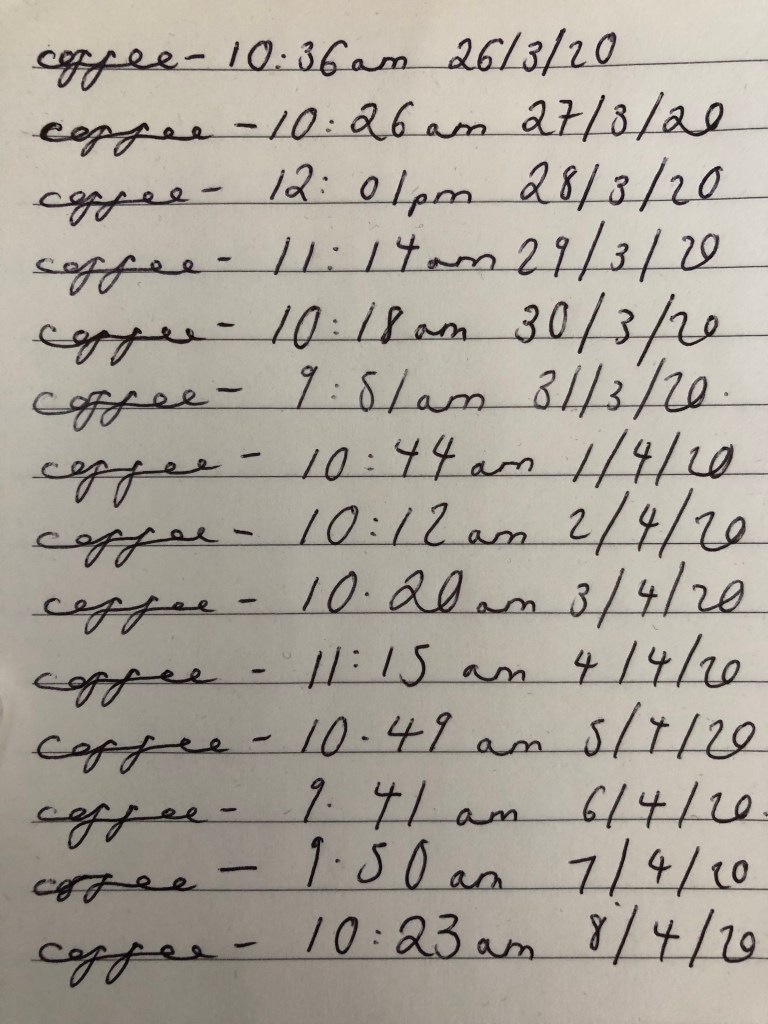 coffee - 10:36am 26/3/20
coffee - 10:26am 27/3/20
coffee - 12:01pm 28/3/20
coffee - 11:14am 29/3/20
coffee - 10:18am 30/3/20
coffee - 9:51am 31/3/20.
coffee - 10:44am 1/4/20
coffee - 10:12am 2/4/20
coffee - 10.20am 3/4/20
coffee - 11:15 am 4/4/20
coffee - 10.49 am 5/4/20
coffee - 9.41 am 6/4/20.
coffee - 9.50am 7/4/20
coffee - 10:23am 8/4/20